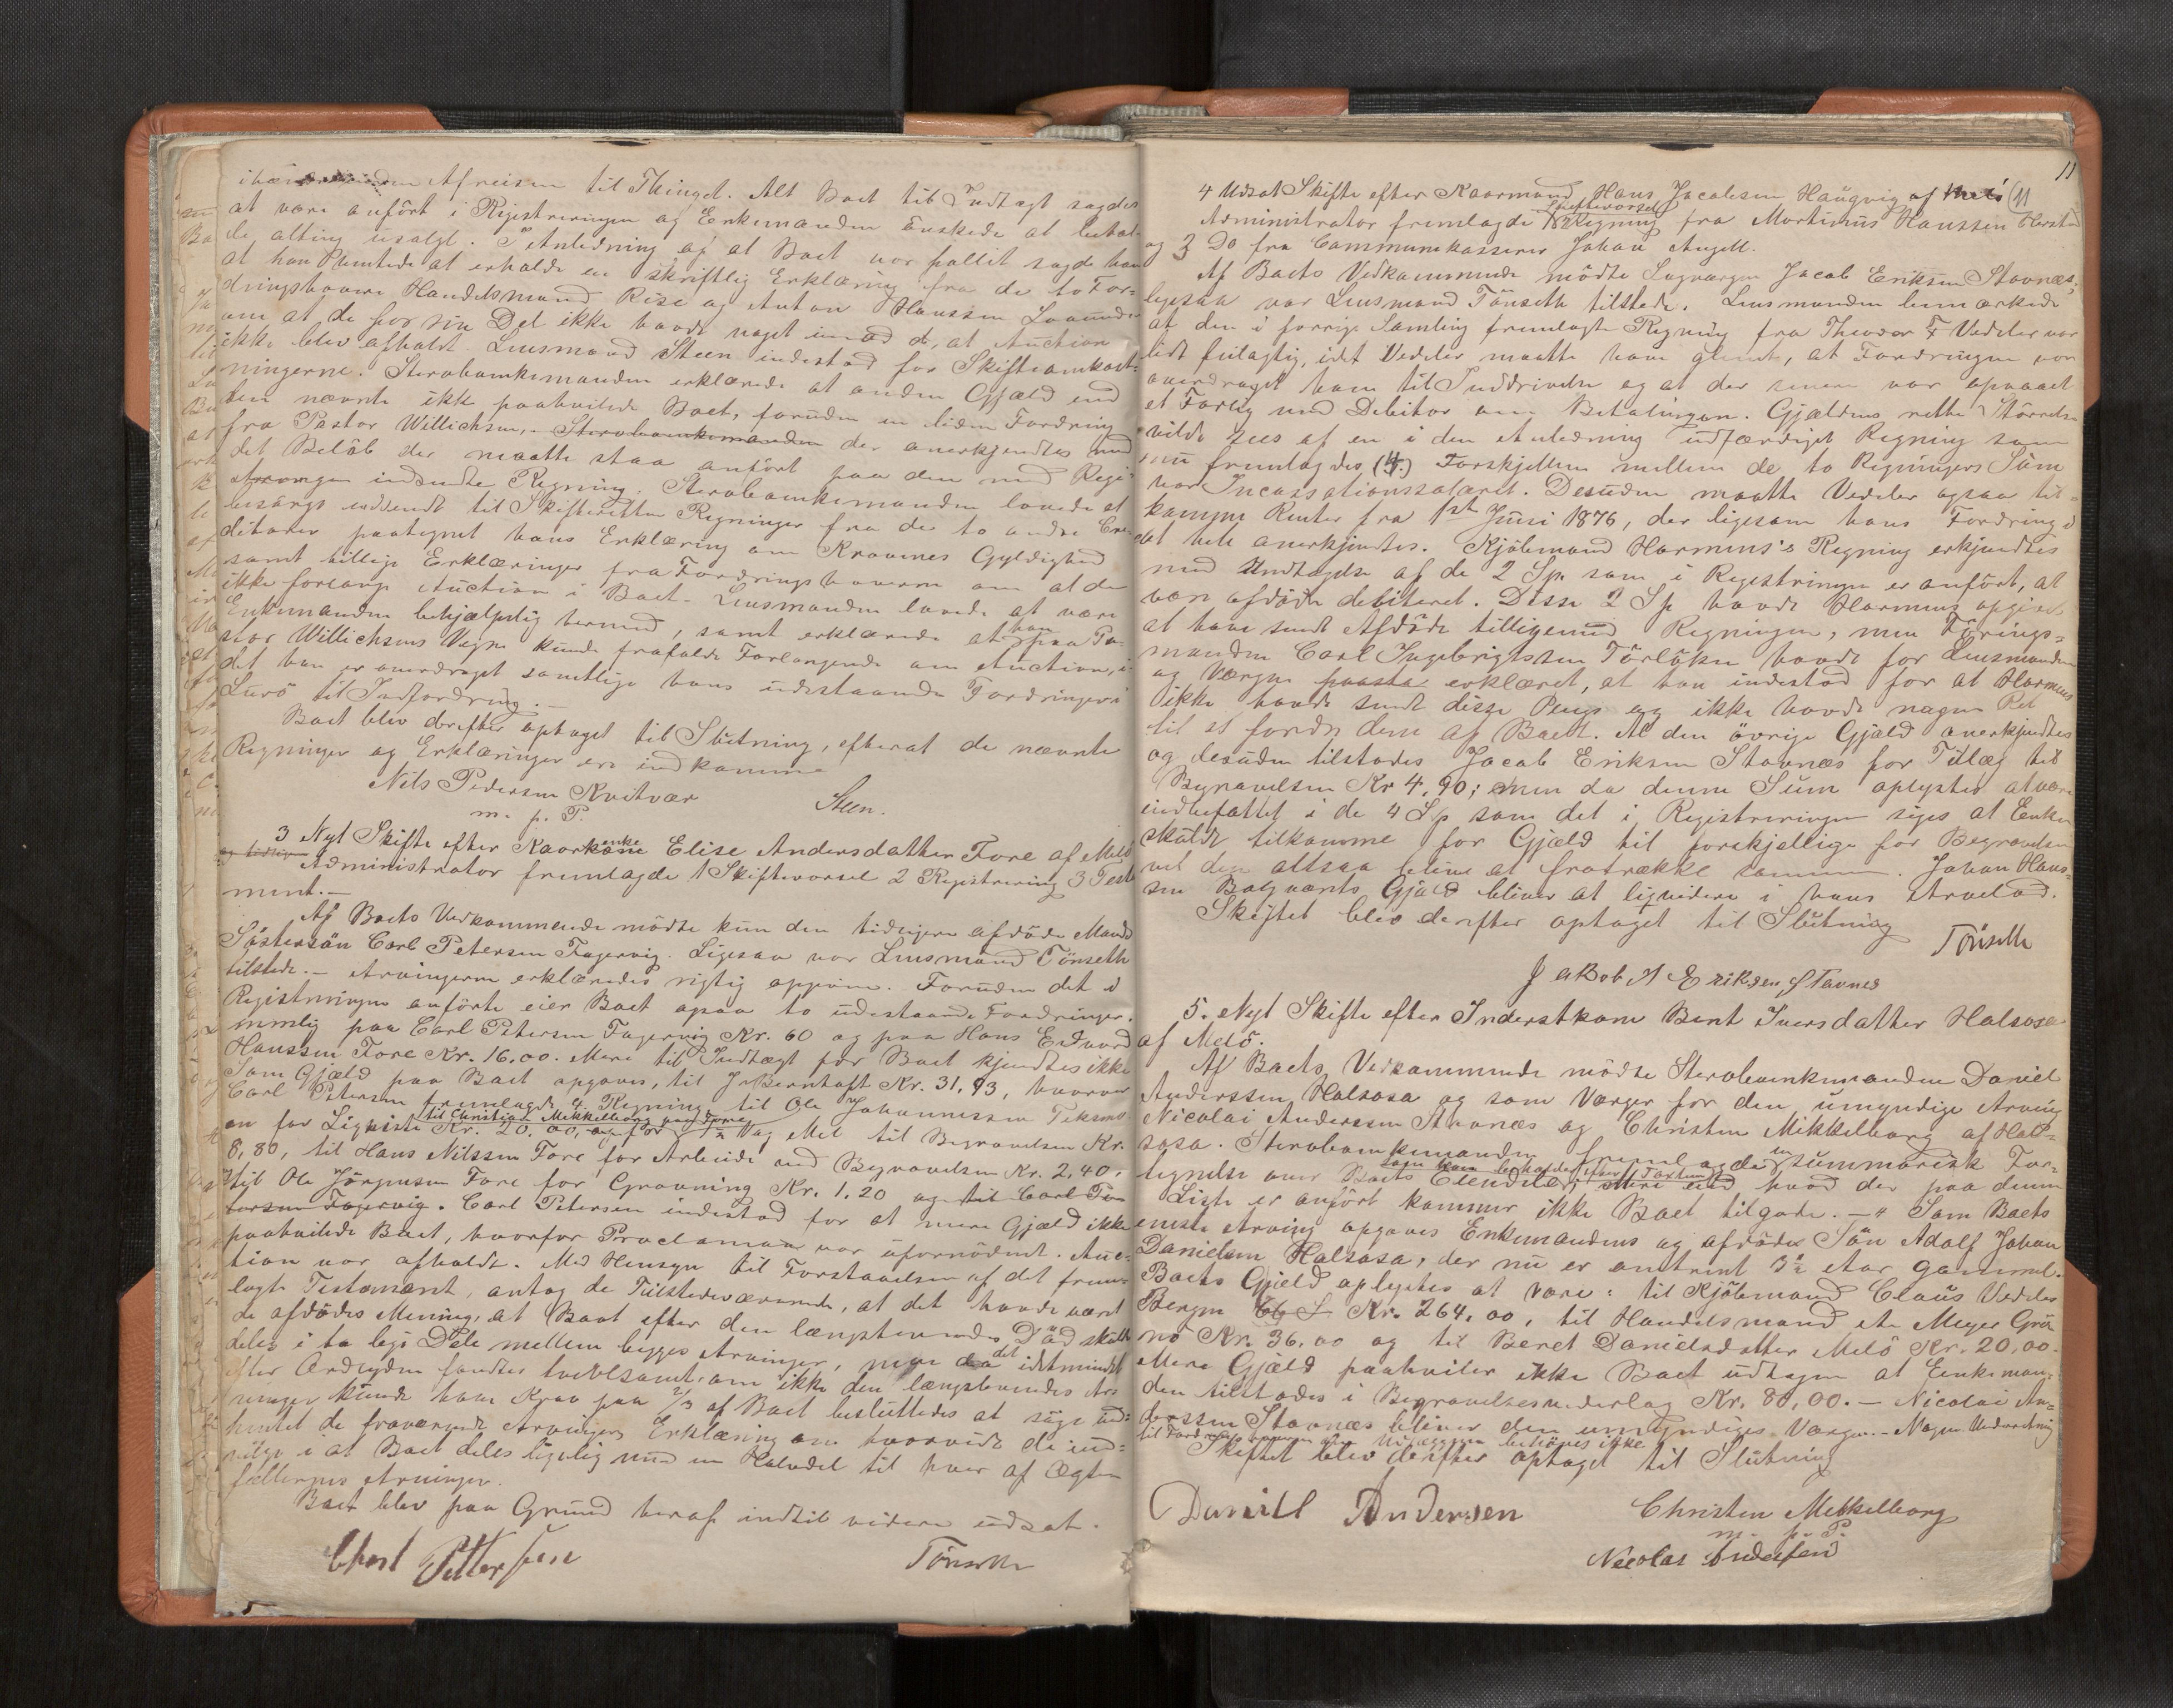 Afreisen til Thinget. Alt Boet til Indtægt sagdes
at være anført i Registreringen og Enkemanden ønskede at betal-
de alting usolgt. I Anledning af at Boet var fallit sagde han
at han ventede at erholde en skriftlig Erklæring fra de to For-
dringshavere Handelsmand Rise og Anton Hanssen Lovunden
om at de for sin Del ikke havde noget imod d, at Auction
ikke blev afholdt. Lensmand Steen indestod for Skifteomkost-
ningerne. Stervboenkemanden erklærede at anden Gjæld end
den nævnte ikke paahvilede Boet, foruden en liden Fordring
fra Pastor Willichsen, Stervboenkemanden der anerkjendtes med
det Beløb der maatte staa anført paa den med Regi-
streringen indsendte Regning. Stervboenkemanden lovede at
besørge indsendt til Skifteretten Regninger fra de to andre Cre-
ditorer paategnet hans Erklæring om Kravenes Gyldighed
samt tillige Erklæringer fra Fordringshaverne om at de
ikke forlange Auction i Boet. Lensmanden lovede at være
Enkemanden behjælpelig hermed, samt erklærede at han paa Pa-
stor Willichsens Vegne kunde frafalde Forlangende om Auction, i-
det han er overdraget samtlige hans udestaaende Fordringer i
Lurö til Indfordring.-
Boet blev derefter optaget til Slutning, efterat de nævnte
Regninger og Erklæringer ere indkomne
Nils Pedersen Kvitvær
m. p. P.
Steen.
3 Nyt Skifte efter Kaarkone enke Elise Andersdatter Fore af Melö
og tidligere Administrator fremlagde 1 Skiftevorsel 2 Registrering 3 Testa
ment.-
Af Boets Vedkommende mödte kun den tidligere afdöde Mands
Söstersön Carl Petersen Fagervig. Ligesaa var Lensmand Tönseth
tilstede.- Arvingerne erklæredes rigtig opgivne. Foruden det i
Registreringen anförte eier Boet ogsaa to udestaaende Fordringer,
nemlig paa Carl Petersen Fagervig Kr. 60 og paa Hans Edvard
Hanssen Fore Kr. 16.00. Mere til Indtægt for Boet kjendtes ikke
Som Gjæld paa Boet opgaves, til J Bernhoft Kr. 31,93, hvorover
Carl Petersen fremlagde 4 Regning til Ole Johannessen Teksmo-
en for Ligkiste Kr. 20.00, og for til Christian Mikkelborg 1½ Vog Mel til Begravelsen Kr.
8,80, til Hans Nilssen Fore for Arbeide ved Begravelsen Kr. 2,40.
til Ole Jörgensen Fore for Gravning Kr. 1.20 og til Carl Pe-
tersen Fagervig. Carl Petersen indestod for at mere Gjæld ikke
paahvilede Boet, hvorfor Proclama var ufornödent. Auc-
tion var afholdt. Med Hensyn til Forstaaelsen af det frem-
lagte Testament, antog de Tilstedeværende, at det havde været
de afdödes Mening, at Boet efter den længstlevendes Död skulde
deles i to lige Dele mellem begges Arvinger, men da det idetmindste
efter Ordlyden fandtes tvivlsomt om ikke den længstlevendes Ar-
vinger kunde have Krav paa 2/3 af Boet besluttedes at söge ind-
hentet de fraværende Arvingers Erklæring om hvorvidt de ind-
vilge i at Boet deles ligelig med en Halvdel til hver af Ægte-
fællernes Arvinger.
Boet blev paa Grund heraf indtil videre udsat.
Carl Pettersen
Tönseth
11
4 Udsat Skifte efter Kaarmand Hans Jacobsen Haugvig af Melö (11
Administrator fremlagde Regning fra Mortinus Hanssen
og 3 Do fra Communekasserer Johan Angell.
Af Boets Vedkommende mödte Lagværgen Jacob Eriksen Stavnæs,
ligesaa var Lensmand Tönseth tilstede. Lensmanden bemærkede
at den i forrige Samling fremlagte Regning fra Theodor F Vedeler var
lidt feilagtig, idet Vedeler maatte have glemt, at Fordringen var
overdraget ham til Inddrivelse og at der senere var opnaaet
et Forlig med Debitor om Betalingen. Gjældens rette Störrelse
vilde sees af en i den Anledning udfærdiget Regning som
nu fremlagdes (4.) Forskjellen mellem de to Regningers Sum
var Incassationssalæret. Desuden maatte Vedeler ogsaa til-
komme Renter fra 1st Juni 1876, der ligesom hans Fordring i
det hele anerkjendtes. Kjöbmand Harmens's Regning erkjendtes
med Undtagelse af de 2 Sp. som i Registreringen er anfört, at
være afdöde debiteret. Disse 2 Sp havde Harmens opgivet
at have sendt Afdöde tilligemed Regningen, men Förings-
manden Carl Ingebrigtsen Törlöken havde for Lensmanden
og Værgen paasta erklæret, at han indestod for at Harmens
ikke havde sendt disse Penge og ikke havde nogen Ret
til at fordre dem af Boet. Al den övrige Gjæld anerkjendtes
og desuden tilstodes Jacob Eriksen Stavnæs for Tillæg til
Begravelsen Kr 4,90; men da denne Sum oplystes at være
indbefattet i de 4 Sp som det i Registreringen siges at Enken
skulde tilkomme for Gjæld til forskjellige for Begravelsen
vil den altsaa blive at fratrække samme. Johan Hans-
sen Gjæld bliver at liqvidere i hans Arvelod.
Skiftet blev derefter optaget til Slutning
Tönseth
Jakob A Eriksen Stavnes
5. Nyt Skifte efter Inderstkone Berit Iversdatter Halsosa
af Melö.
Af Boets Vedkommende mödte Stervboenkemanden Daniel
Anderssen Halsosa og som Værger for den umyndige Arving
Nicolai Anderssen Stavnæs og Christen Mikkelborg af Hal-
sosa. Stervboenkemanden fremlagde en summarisk For-
tegnelse over Boets Eiendele, som han beholder efter Taxten. Mere end hvad der paa denne
Liste er anfört kommer ikke Boet tilgode.- Som Boets
eneste Arving opgaves Enkemandens og afdödes Sön Adolf Johan
Danielsen Halsosa, der nu er omtrent 3½ Aar gammel.
Boets Gjæld oplystes at være: til Kjöbmand Claus Vedeler
Bergen Kr. 264,00, til Handelsmand A Meyer Grö
nö Kr. 36.00 og til Beret Danielsdatter Melö Kr. 20.00.
Mere Gjæld paahviler ikke Boet udtagen at Enkeman-
den tilstodes i Begravelsesvederlag Kr. 80,00.- Nicolai An-
derssen Stavnæs bliver den umyndiges Værge.- Nogen Underretning
til Fordringshaverne om Udlæggene behöves ikke
Skiftet blev derefter optaget til Slutning
Daniel Andersen
Christen Mikkelborg
m. p. P.
Nicolai Andersen